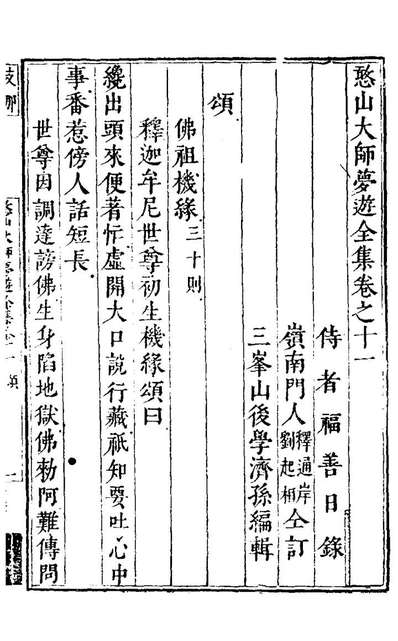 憨山大師夢遊全集卷之十一
侍者福善日錄
嶺南門人釋通岸劉起相仝訂
三峯山後學濟孫編輯
頌
佛祖機緣三十則
釋迦牟尼世尊初生機緣頌曰
纔出頭來便著忙虛開大口說行藏祇知要吐心中
事番惹傍人話短長
世尊因調達謗佛生身陷地獄佛勅阿難傳問
憨山大師夢遊全集卷十一 頌